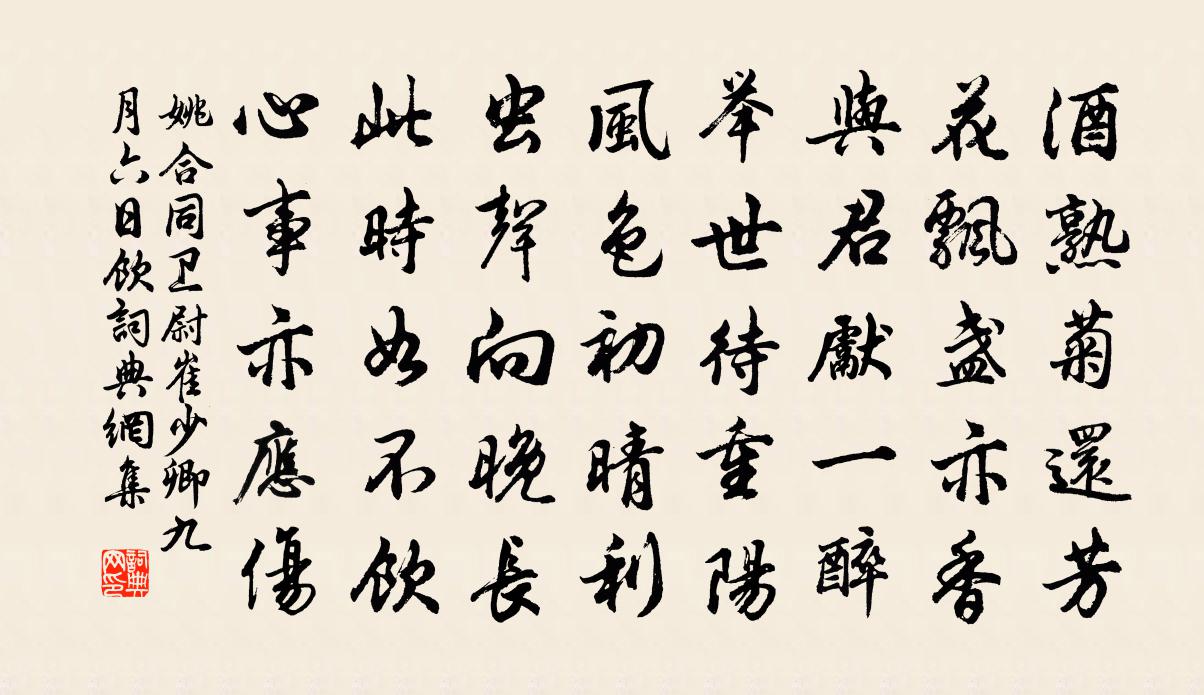 酒熟菊還芳
花飄盞亦香
與君獻一醉
举世待重陽
風色初晴利
虫聲向晚長
此時如不飲
心事亦應傷
姚合同卫尉崔少卿九
月六日飲詞典網集
詞典
网印